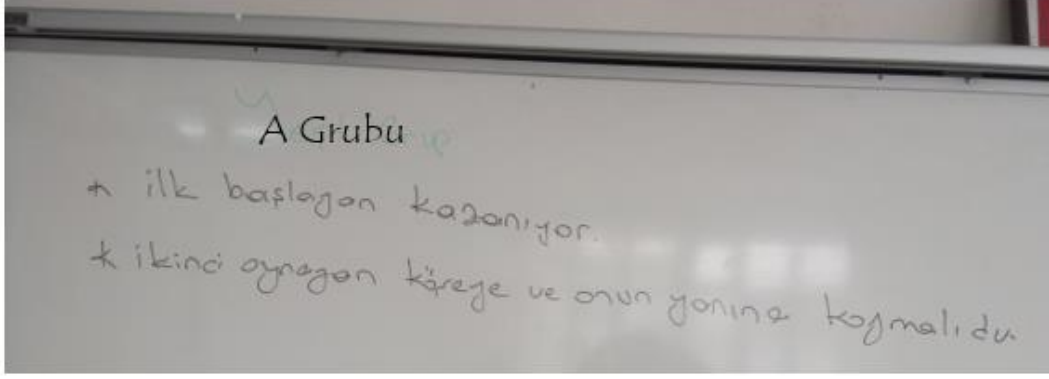 A Grubu
* ilk başlayan kazanıyor.
* ikinci oynayan köşeye ve onun yanına koymalıdır.